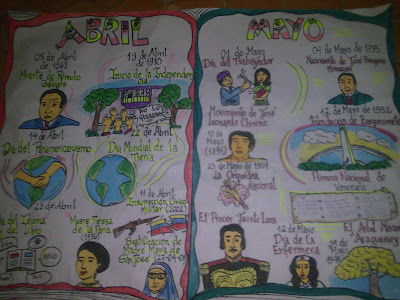 ABRIL
05 de Abril
Muerte de Rómulo
Gallegos
19 de Abril
de 1810
Inicio de la Independen
cia
14 de Abril
Día del Panamericanismo
22 de Abril
Día Mundial de la
Tierra
23 de Abril
del Idioma
del Libro
Muere Teresa
de la Parra
(1936)
11 de Abril
Insurrección Cívico
Militar (2002)
Beatificación de
Madre María de
San José
MAYO
01 de Mayo
Día del Trabajador
04 de Mayo de 1795
Nacimiento de José
de José
Leonardo Chirino
10 de Mayo
(1795)
12 de Mayo de 1952
23 de Mayo de 1951
La Orquídea
Nacional
Himno Nacional de
Venezuela
El Prócer Jacinto Lara
12 de Mayo
Día de la
Enfermera
El Árbol
Araguaney
29 de